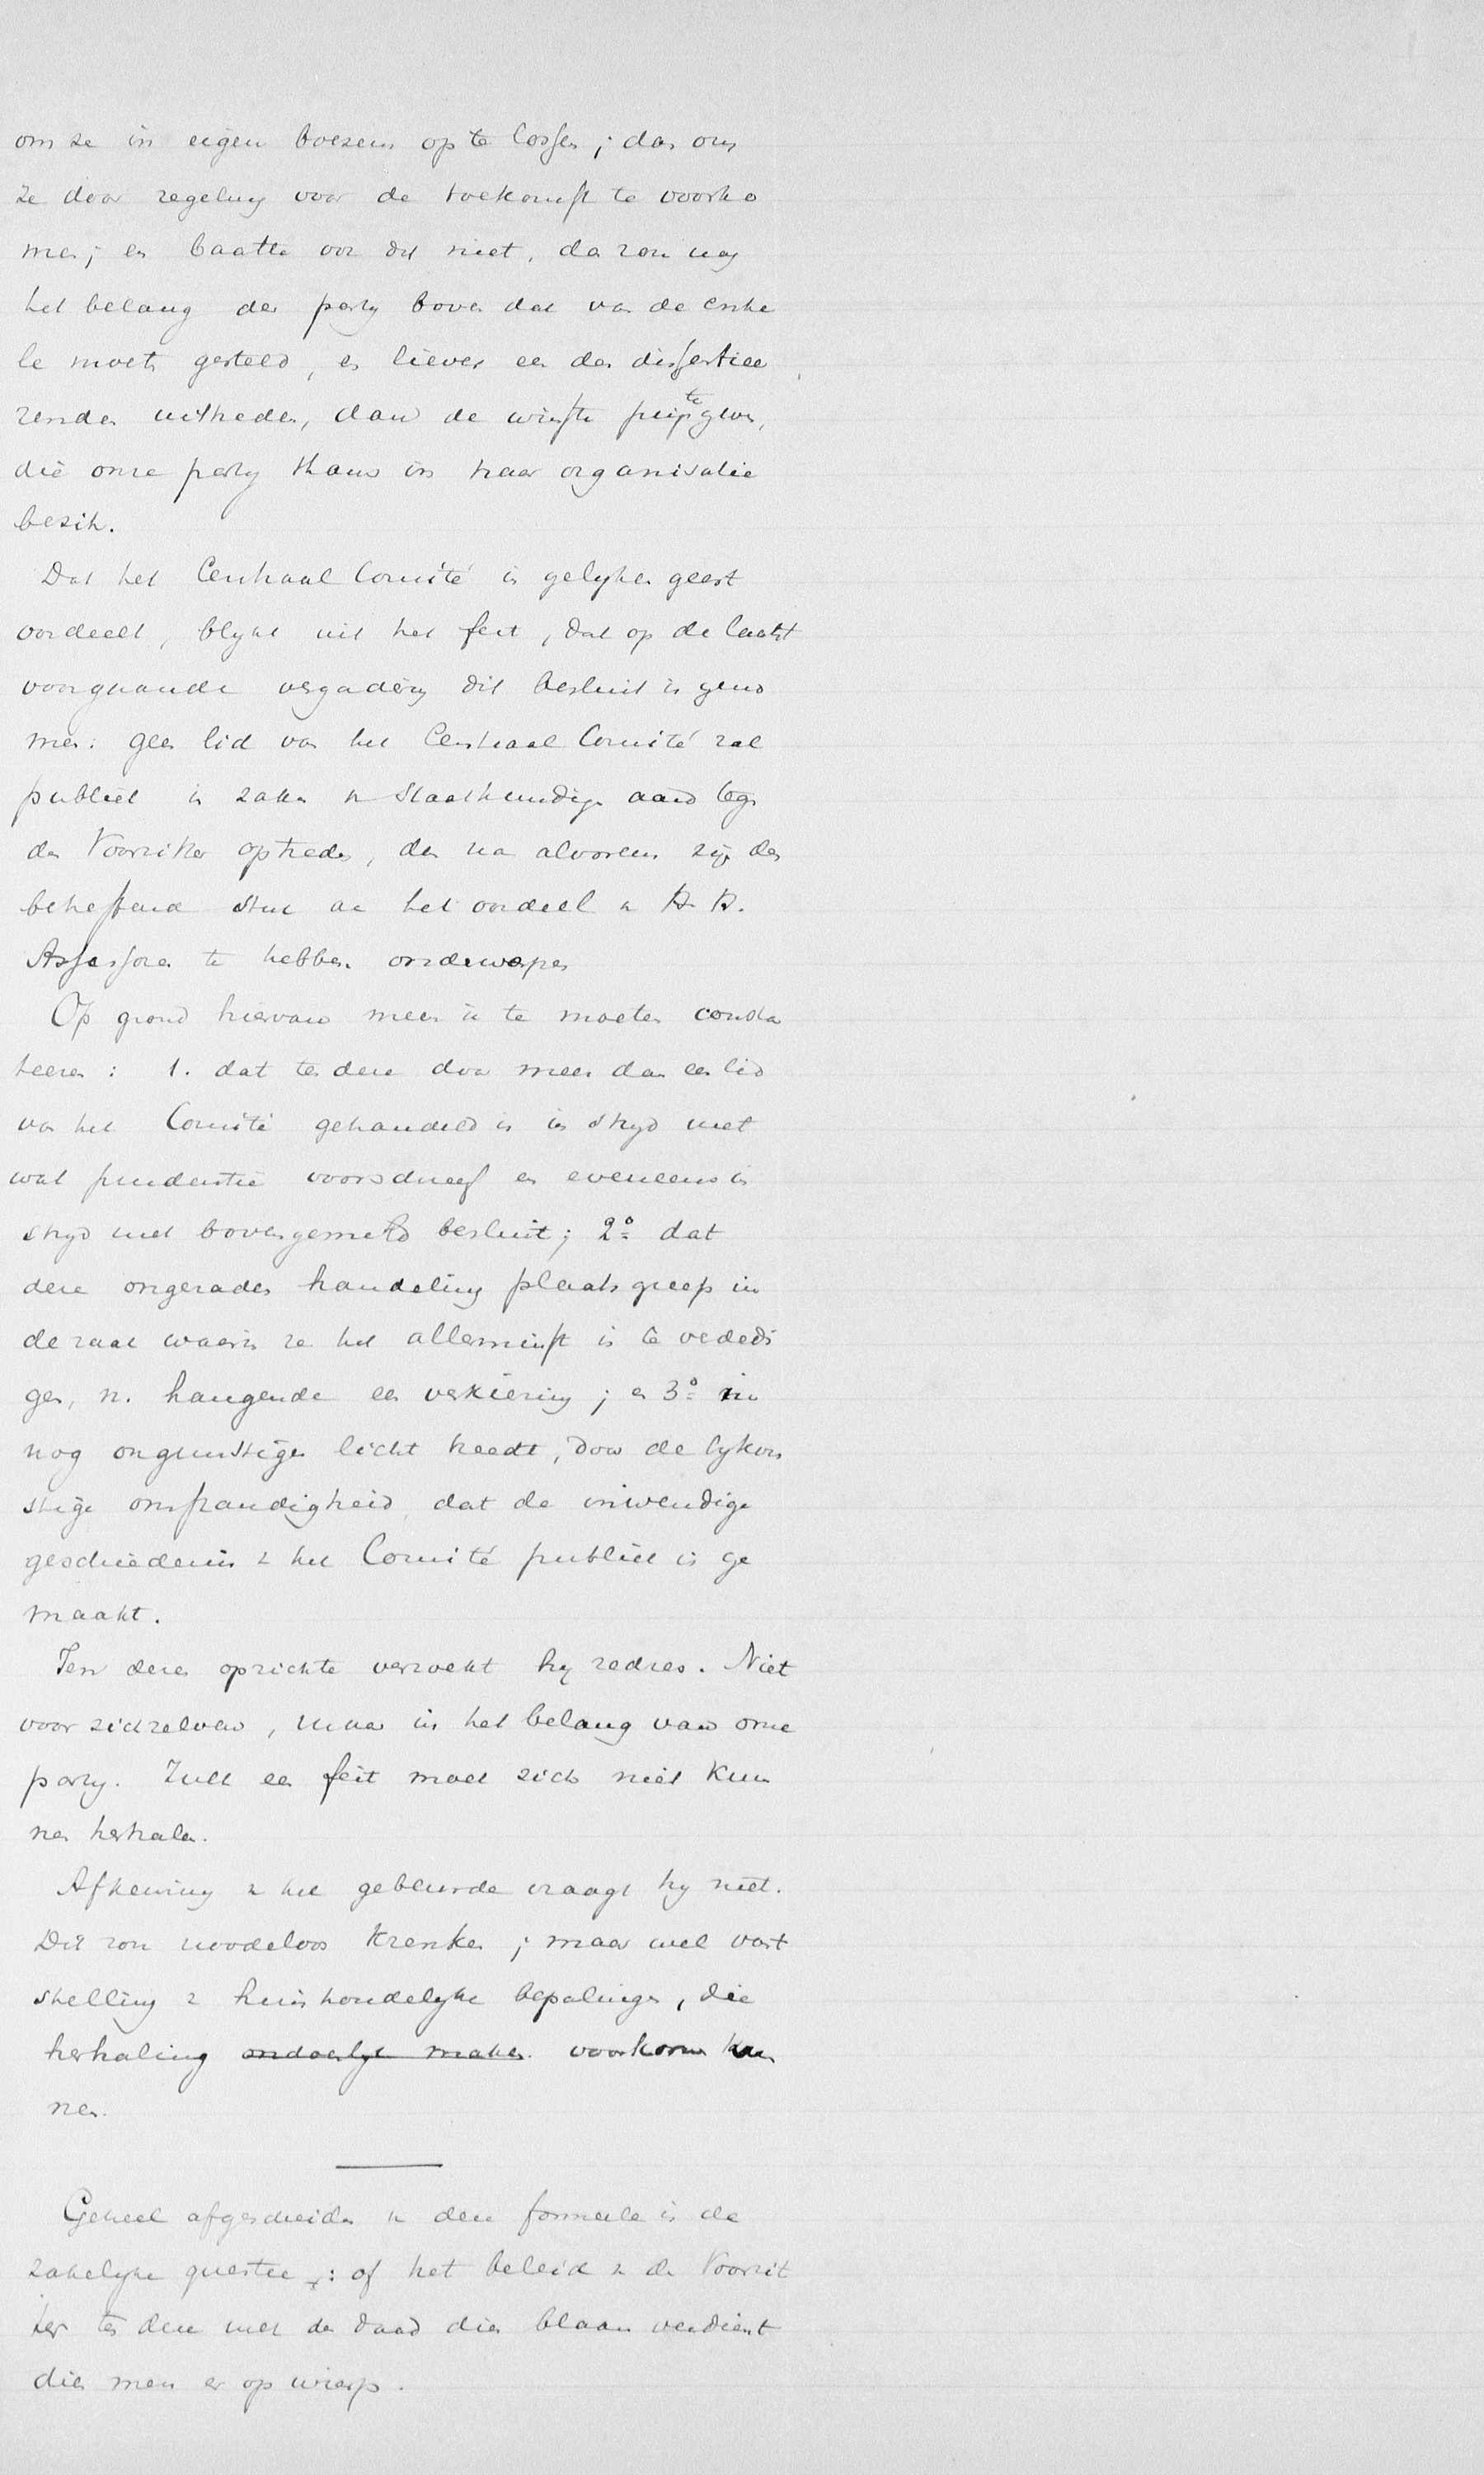 om ze in eigen boezem op te lossen; dan om
ze door regeling voor de toekomst te voorko
men; en baatte ook dit niet, dan zou nog
het belang der party boven dat van de enke
le moeten gesteld, en liever een der dissentiee
renden uittreden, dan de winste prijs te geven,
die onze party thans in haar organisatie
bezit.
Dat het Centraal Comité in gelyken geest
oordeelt, blykt uit het feit, dat op de laatst
voorgaande vergadering dit besluit is geno
men: geen lid van het Centraal Comité zal
publiek in zaken v. staatkundigen aard tegen
den Voorzitter optreden, dan na alvorens zijn des
betreffend stuk aan het oordeel v. H. H.
Assessoren te hebben onderworpen
Op grond hiervan meent te moeten consta
teeren: 1. dat ten deze door meer dan een lid
van het Comité gehandeld is in stryd met
wat prudentie voorschreef en eveneens in
stryd met bovengemeld besluit; 2º dat
deze ongeraden handeling plaats greep in
de zaak waarin ze het allerminst is te verdedi
gen, n. hangende een verkiezing; en 3º in
nog ongunstiger licht treedt, door de bykom
stige omstandigheid, dat de inwendige
geschiedenis v. het Comité publiek is ge
maakt.
Ten dezen opzichte verzoekt hy redres. Niet
voor zichzelven, maar in het belang van onze
party. Zulk een feit moet zich niet kun
nen herhalen.
Afkeuring v. het gebeurde vraagt hy niet.
Dit zou noodeloos krenken; maar wel vast
stelling v. huishoudelyke bepalingen, die
herhaling ondoenlyk maken. voorkomen kun
nen.
Geheel afgescheiden v. deze formeele is de
zakelyke questie: of het beleid v. den Voorzit
ter ten deze met der daad dien blaam verdient
dien men er op wierp.